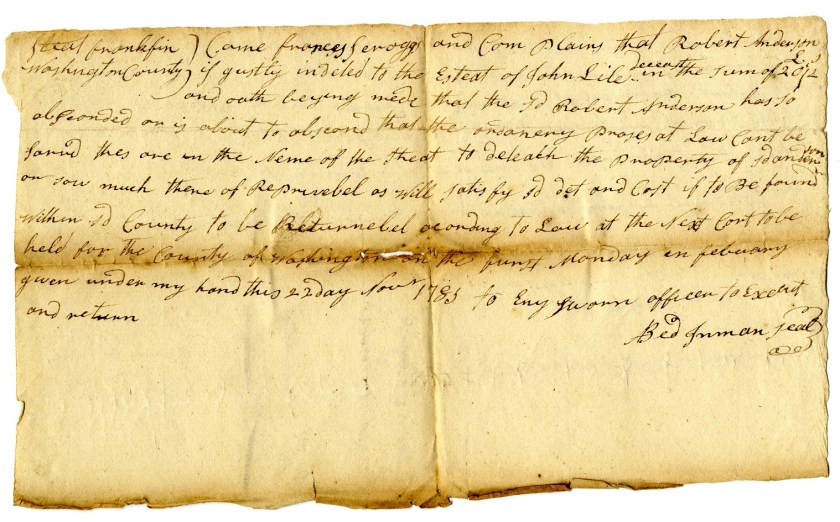 Steat frankfin ) Came frances Scroggs and Com Plains that Robert Anderson
Washington County ) is gustly indeted to the Esteat of John Lile Deceast in the sum of £20/12
and oath beeying mede that the Sd Robert Anderson has so
absconded or is about to abscond that the ordanery Proses at Law Cant be
Sarvid thes are in the Neme of the Steat to deteach the Property of Sd anderson
or sow much there of Reprivebel as Will satisfy Sd det and Cost if to Be found
Within Sd County to be Returnebel acording to Law at the Next Cort to be
held for the County of Washington on the furst Monday in febuary
given under my hand this 22 day Novr 1785 to Eny sworn officer to Execut
and return
Bed Inman seal